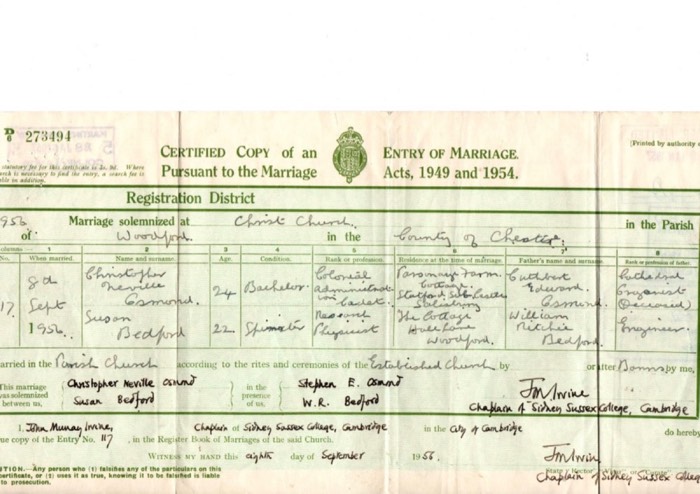 273494
CERTIFIED COPY of an ENTRY OF MARRIAGE.
[Printed by authority
Pursuant to the Marriage Acts, 1949 and 1954.
statutory fee for this certificate is 3s. 9d. Where
search is necessary to find the entry, a search fee is
able in addition.
Registration District
956 Marriage solemnized at Christ Church, in the Parish
of Woodford. in the County of Chester.
No. When married. Name and surname. Age. Condition. Rank or profession. Residence at the time of marriage. Father's name and surname. Rank or profession of father.
117 8th Sept 1956. Christopher Neville Osmond. 24 Bachelor Colonial Administrative Cadet. Parsonage Farm Cottage, Salisbury Cuthbert Edward Osmond. Cathedral Organist (Deceased)
Susan Bedford 22 Spinster Research Physicist The Cottage Hall Lane Woodford. William Ritchie Bedford. Engineer.
arried in the Parish Church according to the rites and ceremonies of the Established Church by or after Banns by me,
This marriage was solemnized between us, Christopher Neville Osmond Susan Bedford in the presence of us, Stephen E. Osmond W.R. Bedford JM Irvine
Chaplain of Sidney Sussex College, Cambridge
I, John Murray Irvine, Chaplain of Sidney Sussex College, Cambridge in the City of Cambridge do hereby
ue copy of the Entry No. 117, in the Register Book of Marriages of the said Church.
WITNESS MY HAND this eighth day of September 1956. JM Irvine
Chaplain of Sidney Sussex College
TION.—Any person who (1) falsifies any of the particulars on this
certificate, or (2) uses it as true, knowing it to be falsified is liable
to prosecution.